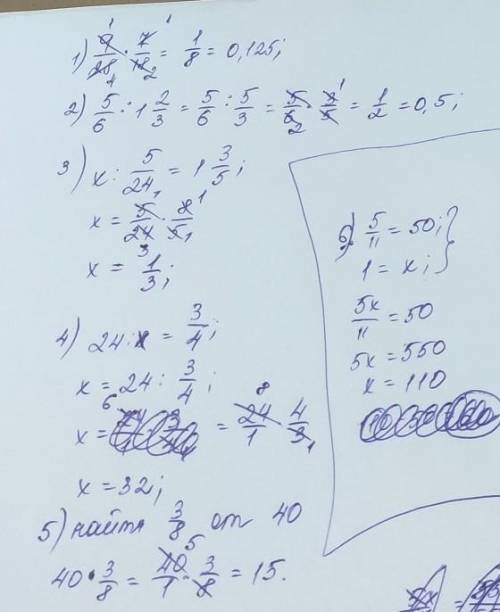 1) 9/28 · 7/18 = 1/8 = 0,125;
2) 5/6 : 1 2/3 = 5/6 : 5/3 = 5/6 · 3/5 = 1/2 = 0,5;
3) x : 5/24 = 1 3/5;
x = 5/24 · 8/5
x = 1/3;
4) 24 : x = 3/4;
x = 24 : 3/4;
x = = 24/1 · 4/3
x = 32;
5) найти 3/8 от 40
40 · 3/8 = 40/1 · 3/8 = 15.
6) 5/11 = 50;
1 = x;
5x/11 = 50
5x = 550
x = 110